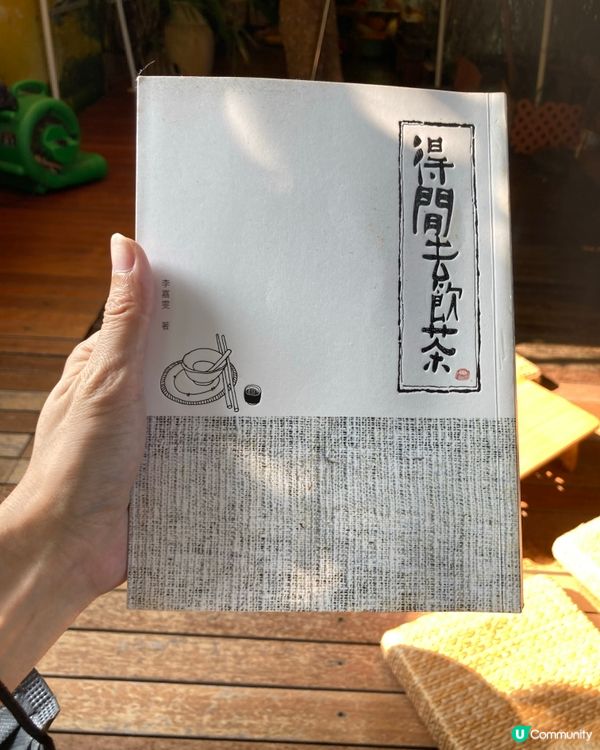 得閒去飲茶
李嘉雯 著
U Community